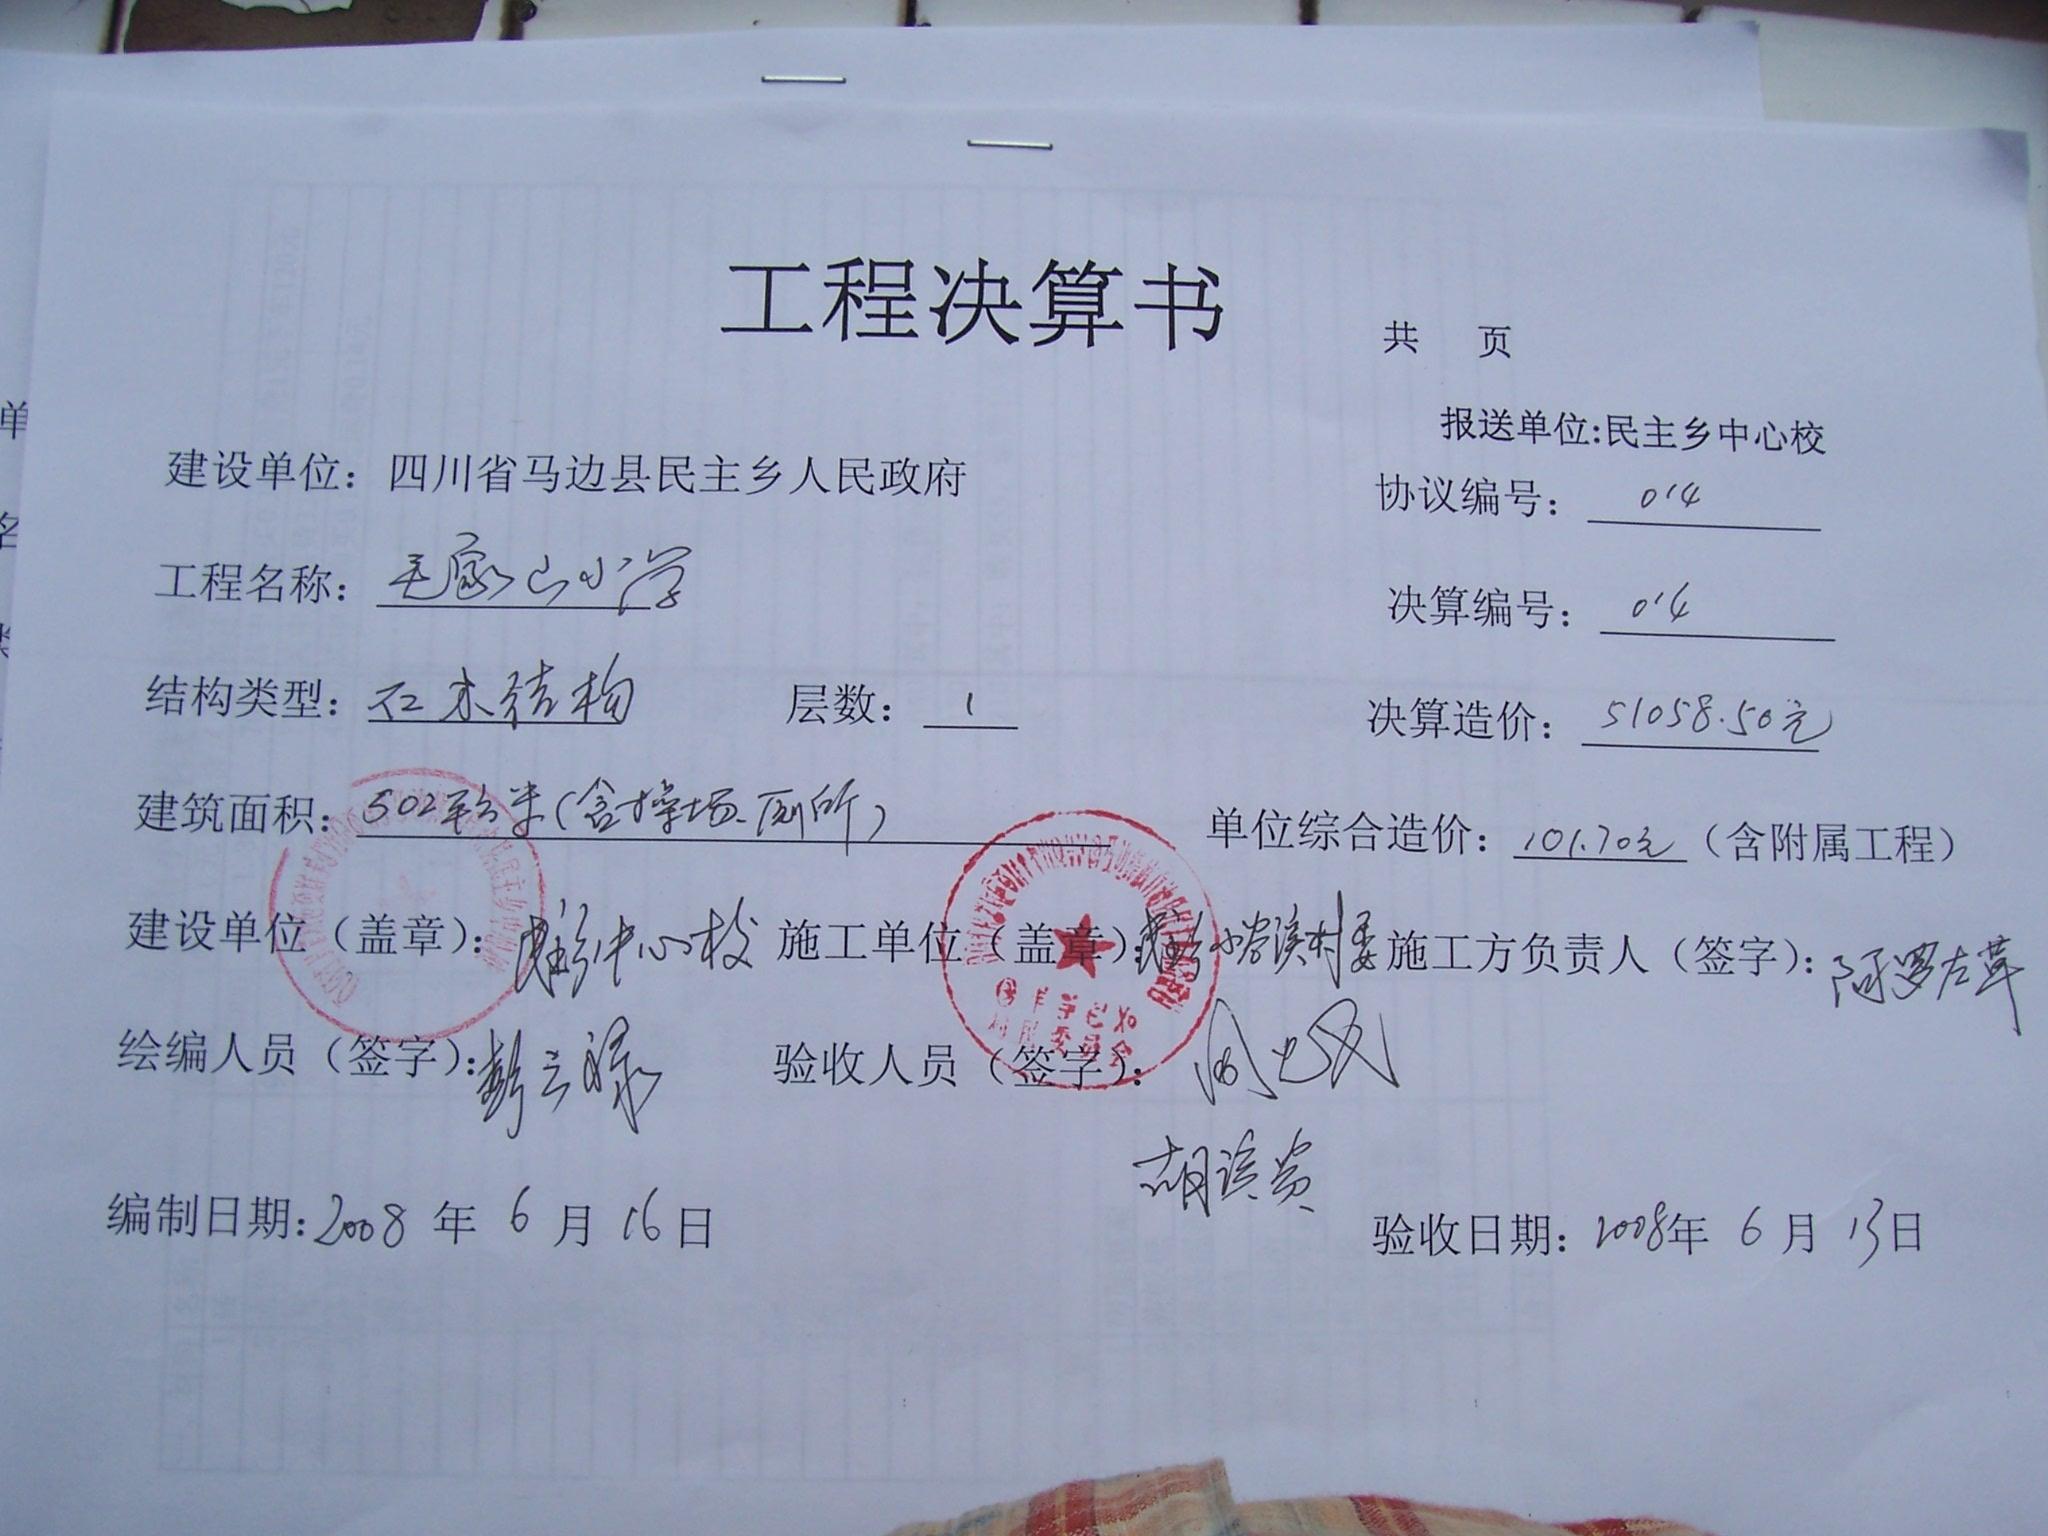 工程决算书
共 页
报送单位:民主乡中心校
建设单位：四川省马边县民主乡人民政府
协议编号：014
工程名称：毛家山小学
决算编号：014
结构类型：石木结构 层数：1
决算造价：51058.50元
建筑面积：502平方米(含操场、厕所)
单位综合造价：101.70元（含附属工程）
建设单位（盖章）：民主乡中心校 施工单位（盖章）：民主乡小谷溪村委 施工方负责人（签字）：阿罗左
绘编人员（签字）：彭云禄 验收人员（签字）：
胡
编制日期：2008 年 6 月 16日
验收日期：2008年 6 月 13日
单
名